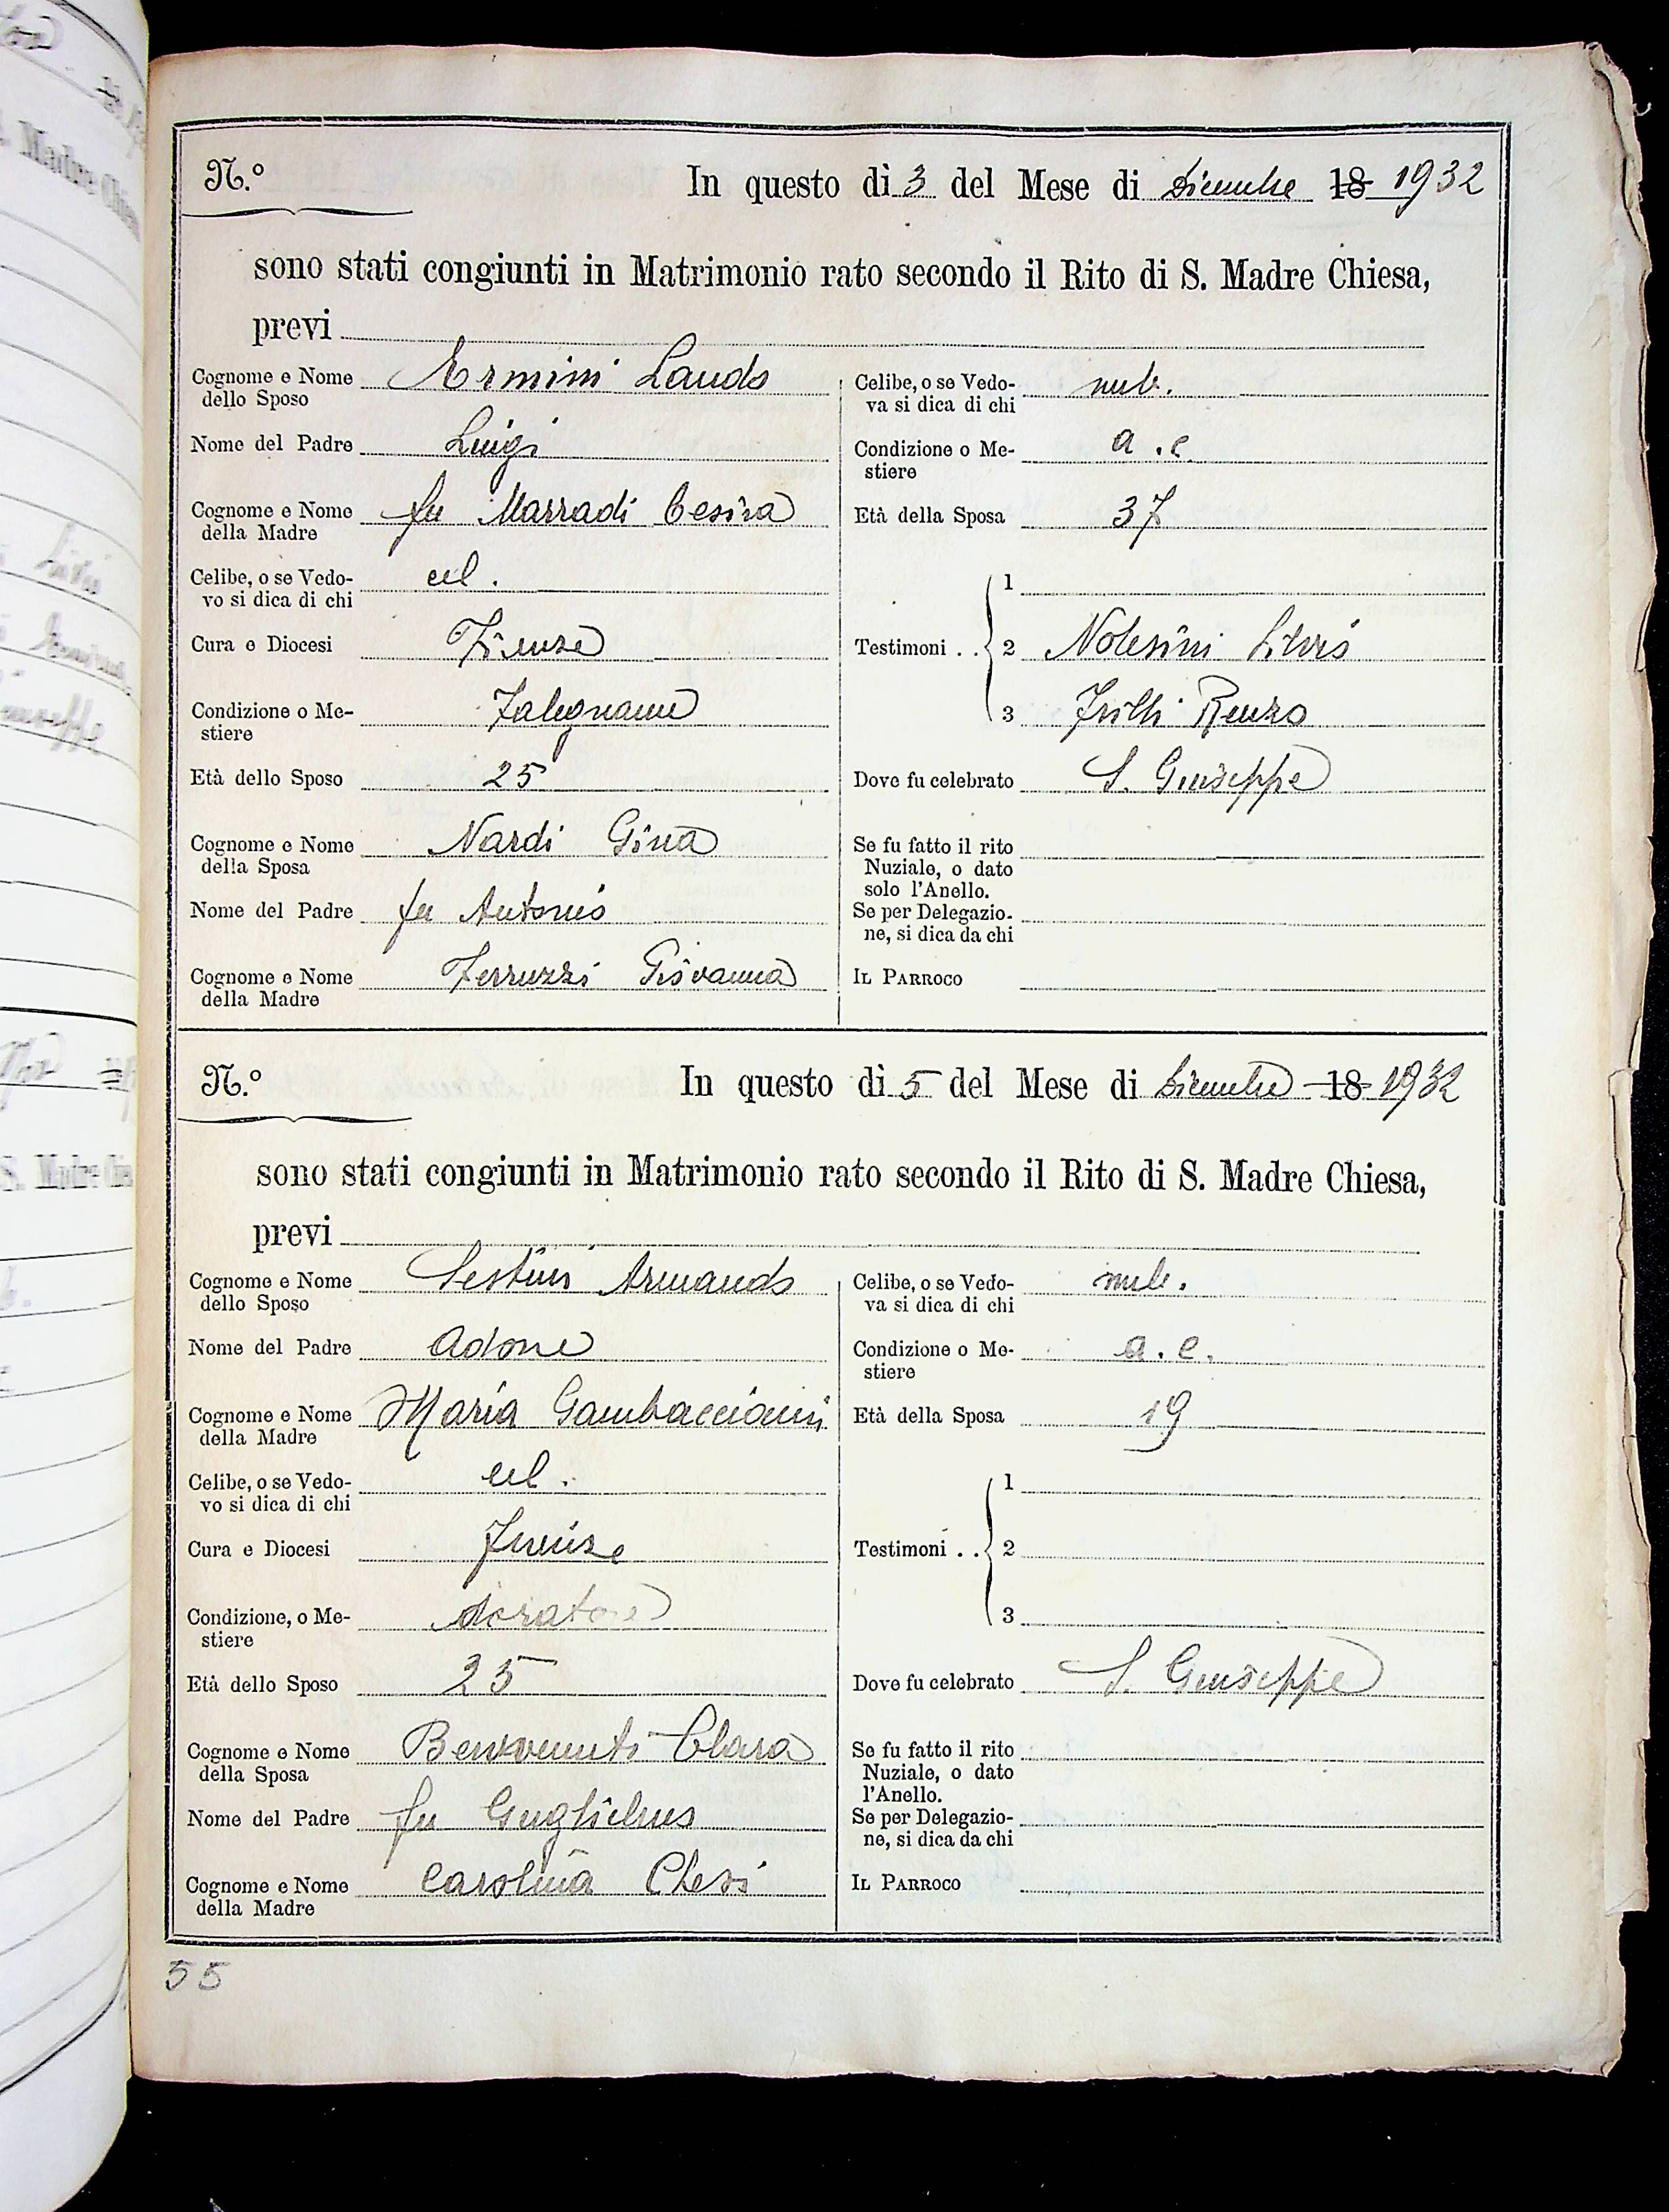 N.º In questo dì 3 del Mese di Dicembre 18 1932
sono stati congiunti in Matrimonio rato secondo il Rito di S. Madre Chiesa,
previ
Cognome e Nome dello Sposo Ermini Lando
Nome del Padre Luigi
Cognome e Nome della Madre fu Marradi Cesira
Celibe, o se Vedo-
vo si dica di chi cel.
Cura e Diocesi Firenze
Condizione o Me-
stiere Falegname
Età dello Sposo 25
Cognome e Nome della Sposa Nardi Gina
Nome del Padre fu Antonio
Cognome e Nome della Madre Ferruzzi Giovanna
Celibe, o se Vedo-
va si dica di chi nub.
Condizione o Me-
stiere a. c.
Età della Sposa 37
Testimoni . . 1
2 Nolesini Silvio
3 Frilli Renzo
Dove fu celebrato S. Giuseppe
Se fu fatto il rito
Nuziale, o dato
solo l'Anello.
Se per Delegazio-
ne, si dica da chi
IL PARROCO
N.º In questo dì 5 del Mese di Dicembre 18 1932
sono stati congiunti in Matrimonio rato secondo il Rito di S. Madre Chiesa,
previ
Cognome e Nome dello Sposo Sestini Armando
Nome del Padre Adone
Cognome e Nome della Madre Maria Gambacciani
Celibe, o se Vedo-
vo si dica di chi cel.
Cura e Diocesi Firenze
Condizione, o Me-
stiere doratore
Età dello Sposo 25
Cognome e Nome della Sposa Benvenuti Clara
Nome del Padre fu Guglielmo
Cognome e Nome della Madre Carolina Chesi
Celibe, o se Vedo-
va si dica di chi nub.
Condizione o Me-
stiere a. c.
Età della Sposa 19
Testimoni . . 1
2
3
Dove fu celebrato S. Giuseppe
Se fu fatto il rito
Nuziale, o dato
l'Anello.
Se per Delegazio-
ne, si dica da chi
IL PARROCO
55